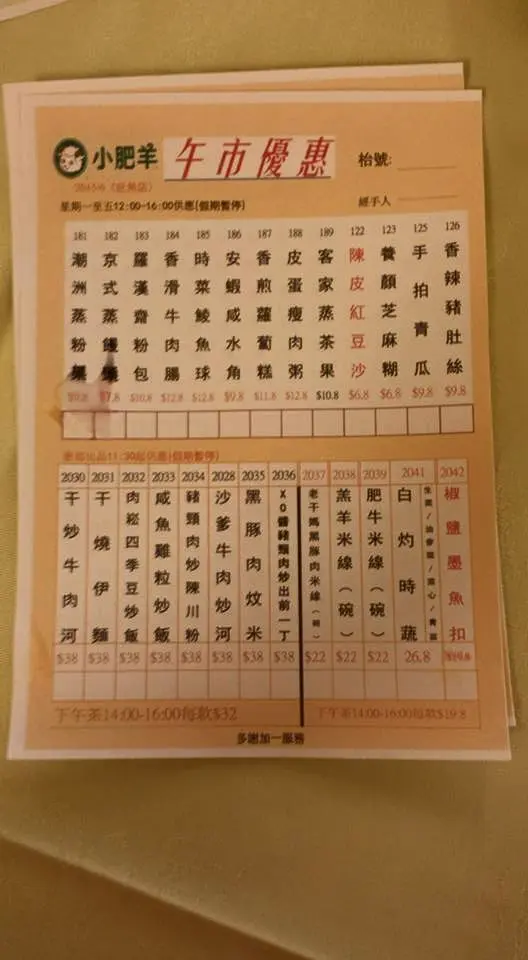 小肥羊 午市優惠 枱號:
星期一至五12:00-16:00供應(假期暫停) 經手人
181 潮洲蒸粉
182 京式蒸 $7.8
183 羅漢齋粉包 $10.8
184 香滑牛肉腸 $12.8
185 時菜鯪魚球 $12.8
186 安蝦咸水角 $9.8
187 香煎蘿蔔糕 $11.8
188 皮蛋瘦肉粥 $12.8
189 客家蒸茶果 $10.8
122 陳皮紅豆沙 $6.8
123 養顏芝麻糊 $6.8
125 手拍青瓜 $9.8
126 香辣豬肚絲 $9.8
廚部出品11:30起供應(假期暫停)
2030 干炒牛肉河 $38
2031 干燒伊麵 $38
2032 肉崧四季豆炒飯 $38
2033 咸魚雞粒炒飯 $38
2034 豬頸肉炒陳川粉 $38
2028 沙爹牛肉炒河 $38
2035 黑豚肉炆米 $38
2036 XO醬豬頸肉炒出前一丁 $38
2037 老干媽黑豚肉米線(碗) $22
2038 羔羊米線(碗) $22
2039 肥牛米線(碗) $22
2041 白灼時蔬 生菜/油麥菜/菜心/ 26.8
2042 椒鹽墨魚扣
下午茶14:00-16:00每款$32
下午茶14:00-16:00每款$19.8
多謝加一服務